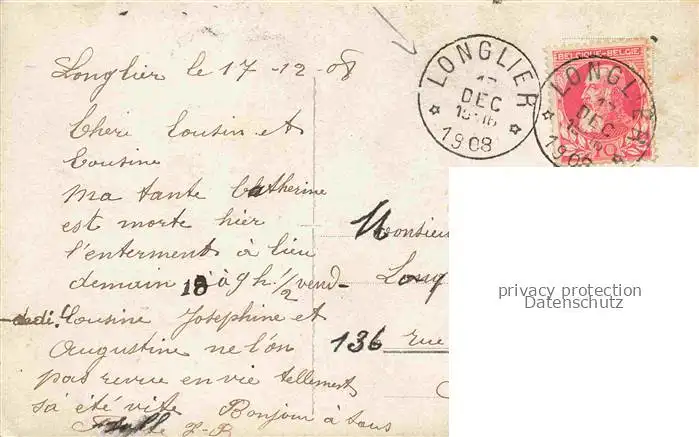 Longlier le 17-12-08
Cheri Cousin et
Cousine
Ma tante Catherine
est morte hier
l'enterment à lieu
demain 18 à 9 h. 1/2 vend-
-dedi. Cousine Josephine et
Augustine ne l'on
pas revue en vie tellement
sà été vite Bonjour à tous
J-B
LONGLIER
17
DEC
15-16
1908
BELGIQUE-BELGIË
LONGLIER
17
DEC
1908
Monsieur
Long
136 rue
privacy protection
Datenschutz